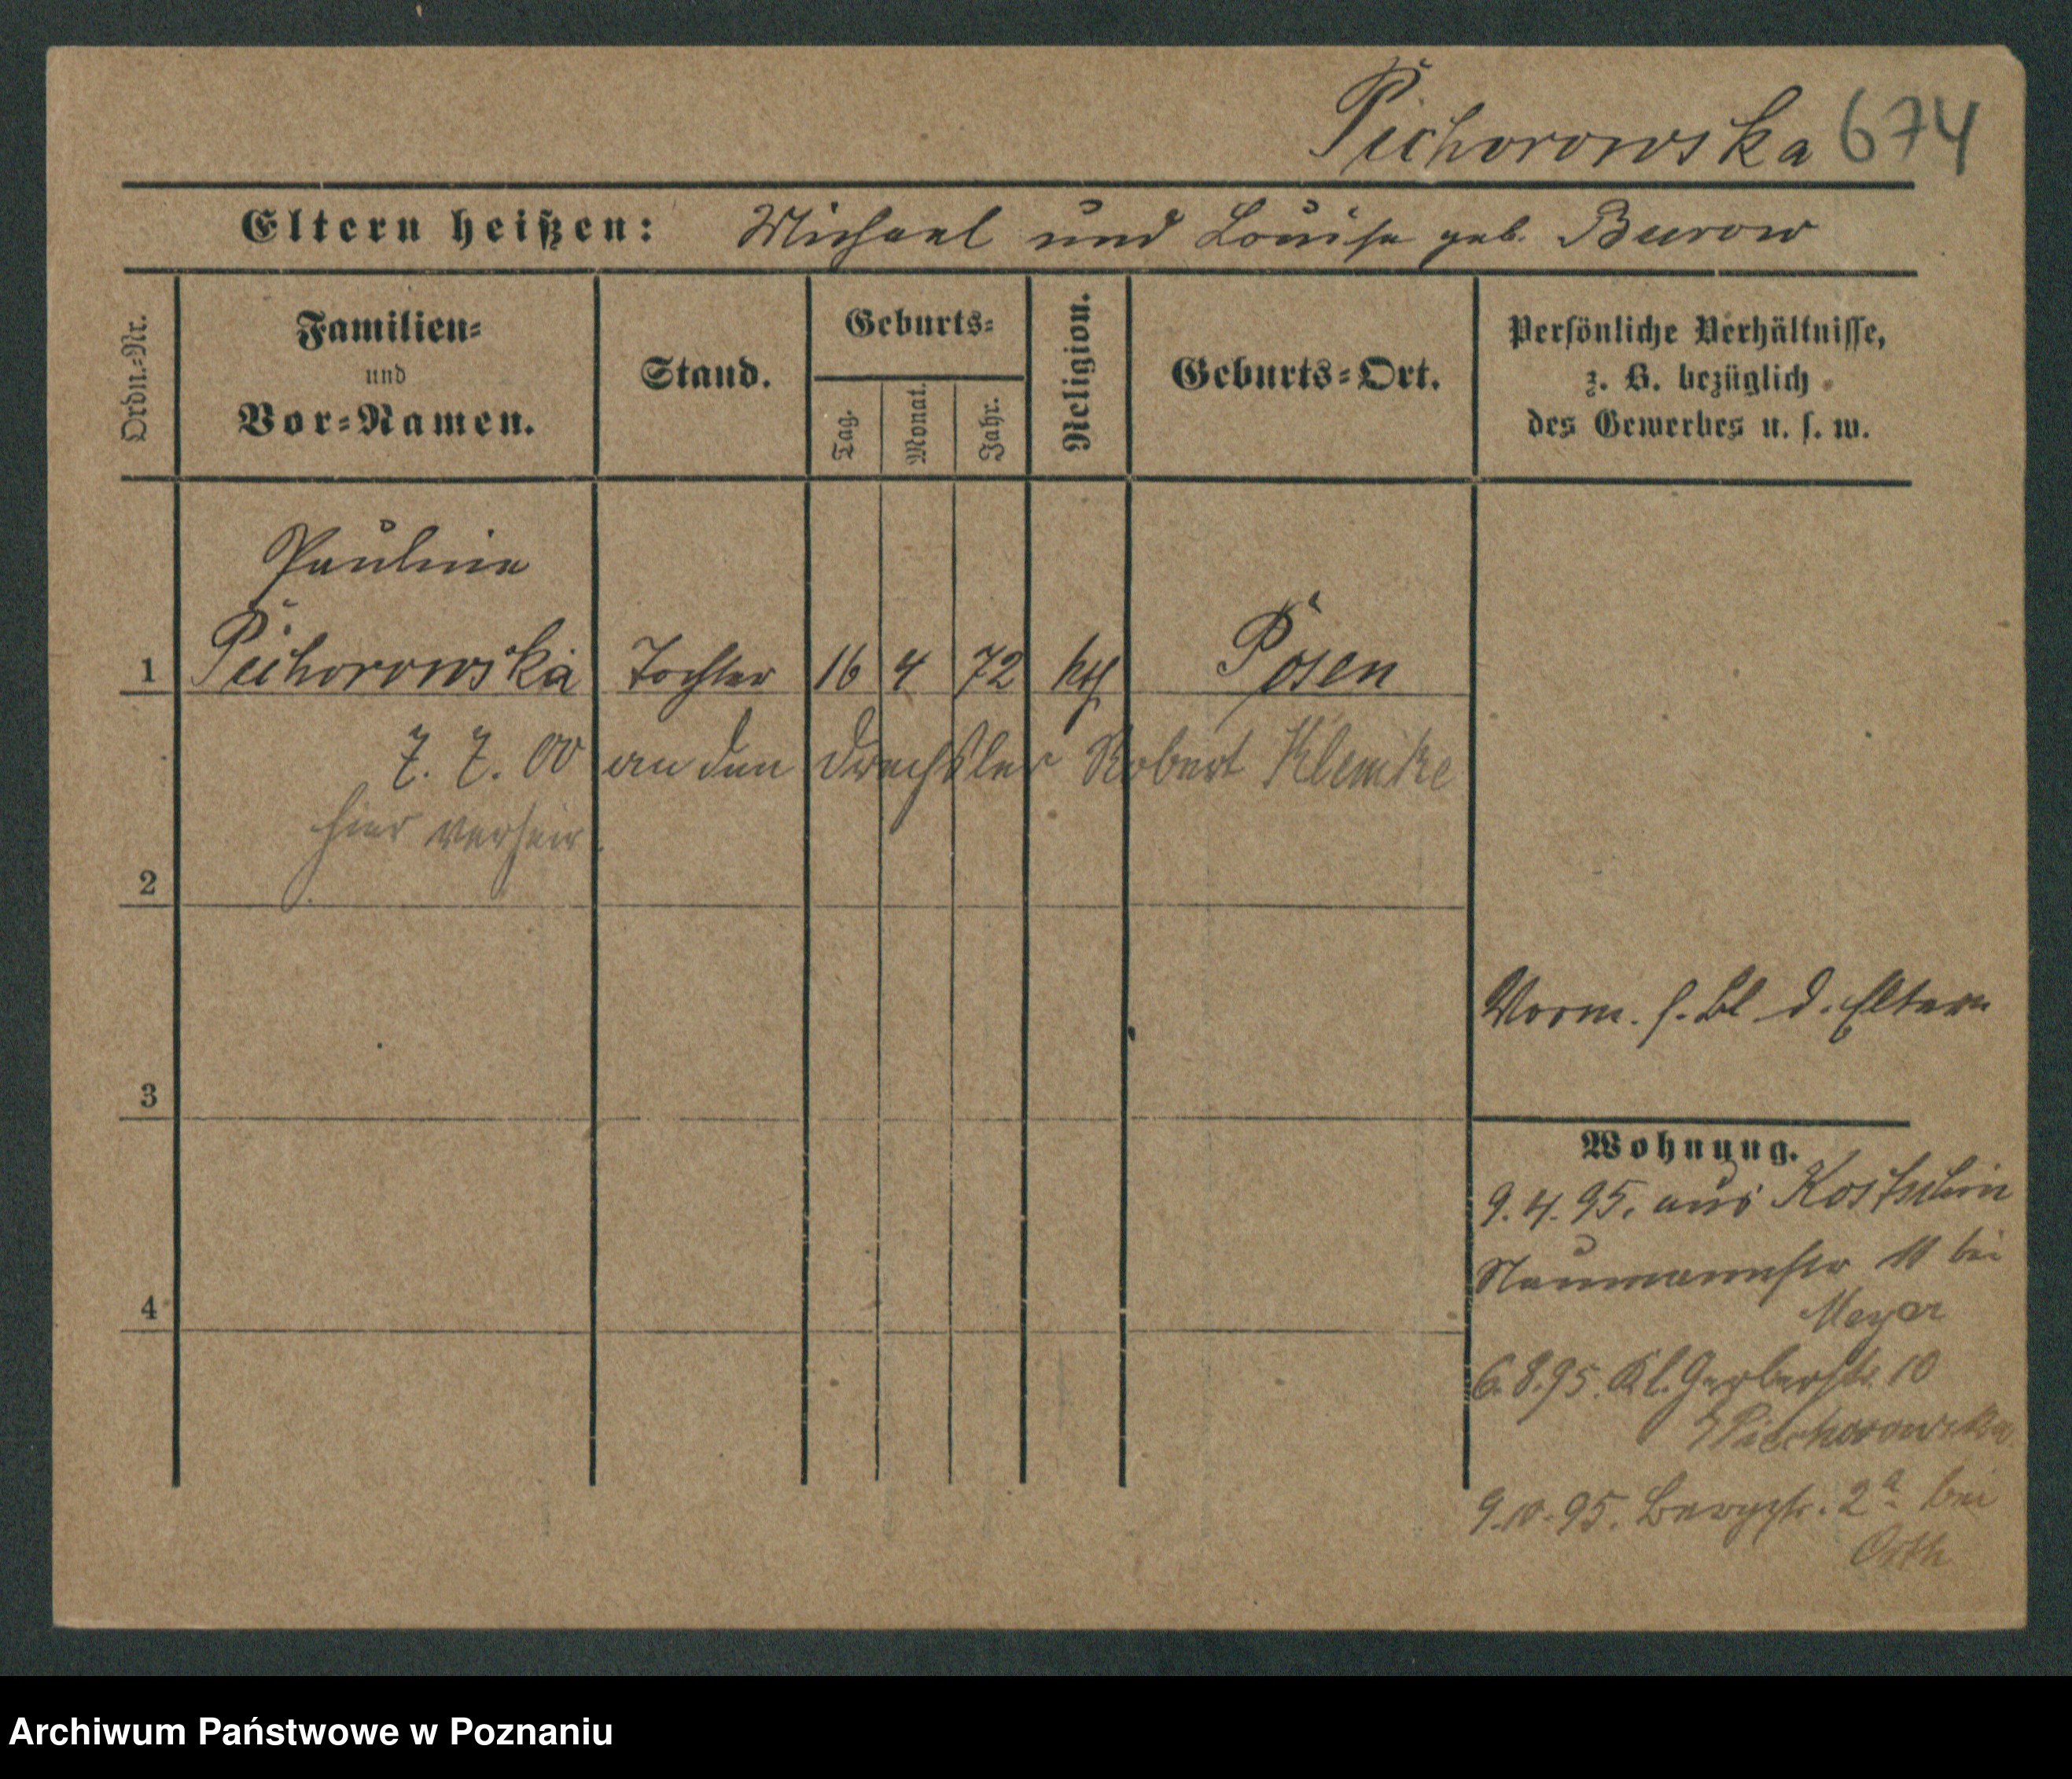 Pichorowska 674
Eltern heißen: Michael und Louise geb. Burow
Ordn.-Nr.
Familien-
und
Vor-Namen.
Stand.
Geburts-
Tag.
Monat.
Jahr.
Religion.
Geburts-Ort.
Persönliche Verhältnisse,
z. B. bezüglich
des Gewerbes u. s. w.
Pauline
1 Pichorowska Tochter 16 4 72 kth Posen
7. 7. 00 an den Drechsler Robert Klemke
hier verheir.
2
Vorm. s. Bl d. Eltern
3
Wohnung.
9. 4. 95. aus Kostschin
Naumannstr 11 bei
Meyer
4
6. 8. 95. Kl. Gerberstr. 10
Piechorowska
9. 10. 95. Bergstr. 2a bei
Orth
Archiwum Państwowe w Poznaniu